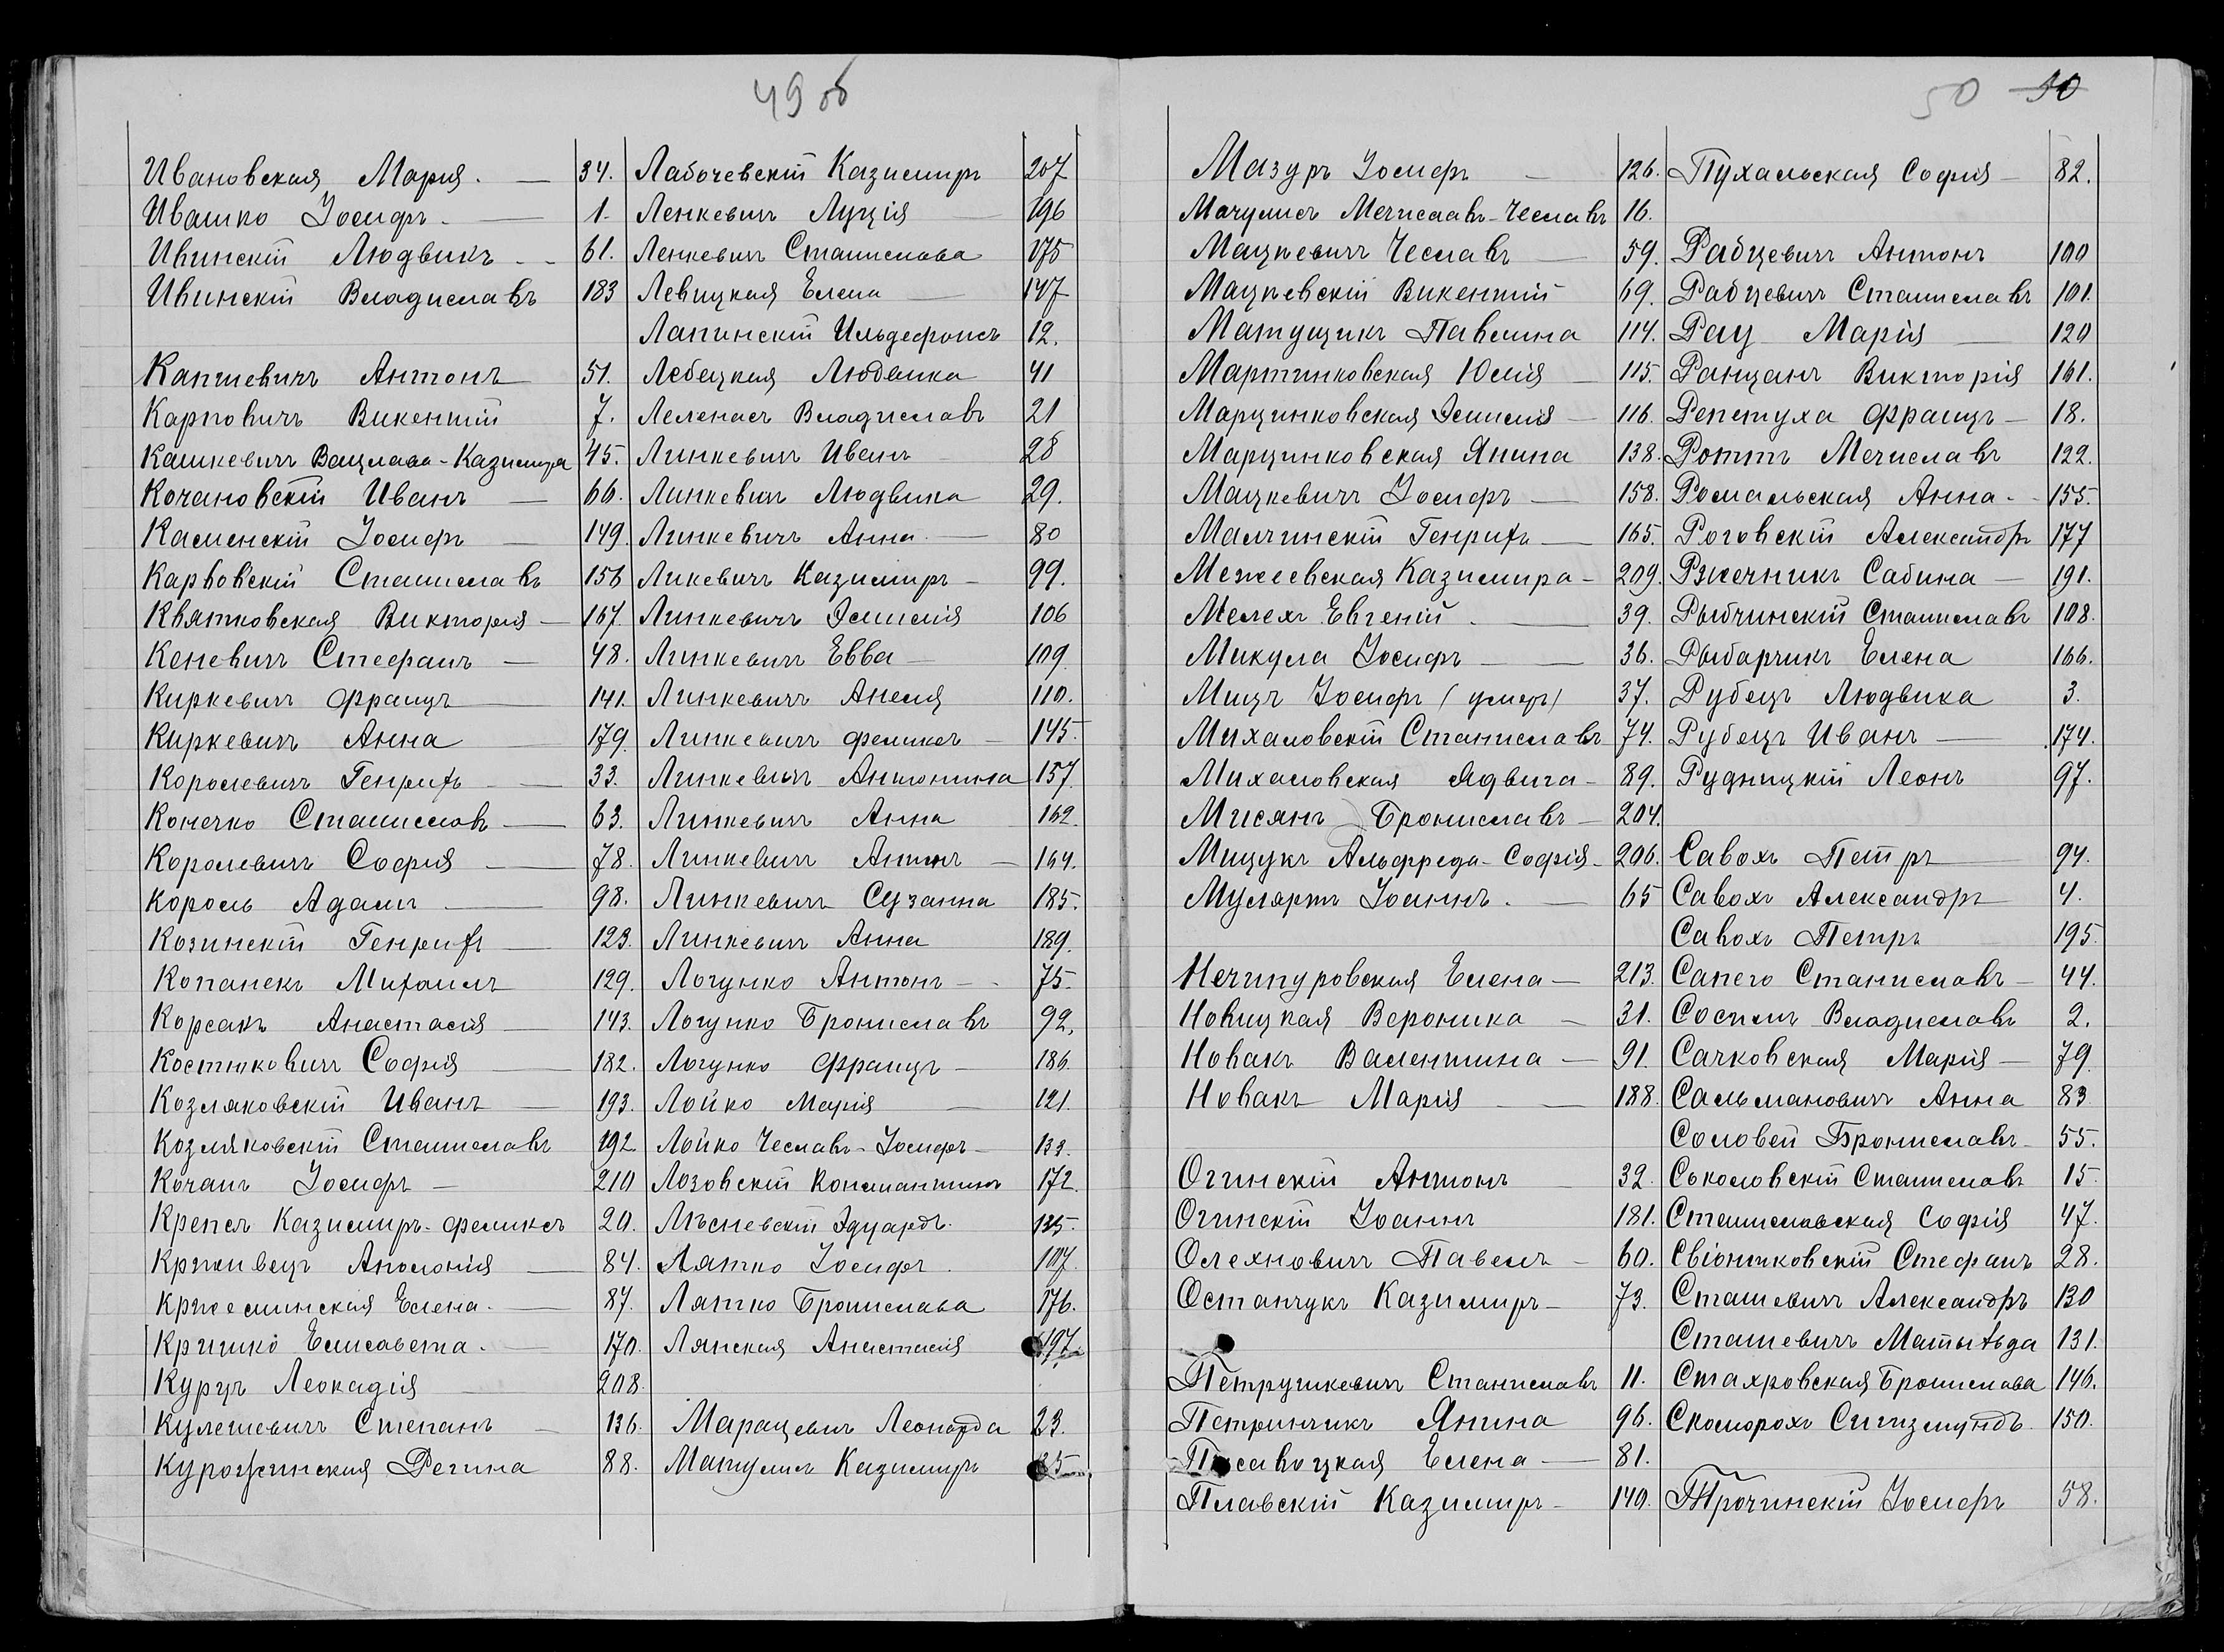 49 об
Ивановская Мария. — 34.
Ивашко Іосифъ. — 1.
Ивинскій Людвикъ - - 61.
Ивинскій Владиславъ 183
Антонъ 51.
Карповичъ Викентій 7.
Кашкевичъ Вацлава-Казимира 45.
Кочановскій Иванъ — 66.
Каменскій Іосифъ — 149.
Карвовскій Станиславъ 156
Квятковская Викторія — 167.
Кеневичъ Стефанъ — 48.
Киркевичъ Францъ — 141.
Киркевичъ Анна — 179.
Королевичъ Генрихъ — 33.
Конечко Станиславъ — 63.
Королевичъ Софія — 78.
Король Адамъ — 98.
Козинскій Генрихъ — 123.
Копанекъ Михаилъ 129.
Корсакъ Анастасія — 143.
Костюковичъ Софія — 182.
Козляковскій Иванъ — 193.
Козляковскій Станиславъ 192
Кочанъ Іосифъ — 210
Крепсъ Казимиръ-Феликсъ 20.
Крживецъ Аполонія — 84.
Кржесминская Елена. — 87.
Кришко Елисавета. — 170.
Куруъ Леокадія — 208.
Кулешевичъ Степанъ — 136.
Регина 88.
Лабочевскій Казимиръ 207
Ленкевичъ Луція — 196
Ленкевичъ Станислава 175
Левицкая Елена — 147
Лапинскій Ильдефонсъ 12.
Лебецкая Людвика 41
Леленасъ Владиславъ 21
Линкевичъ Иванъ 28
Линкевичъ Людвика 29.
Линкевичъ Анна — 80
Ликевичъ Казимиръ — 99.
Линкевичъ Эмилія 106
Линкевичъ Евва — 109
Линкевичъ Анеля 110.
Линкевичъ Феликсъ — 145.
Линкевичъ Антонина 157.
Линкевичъ Анна 162.
Линкевичъ Антонъ — 164.
Линкевичъ Сузанна 185.
Линкевичъ Анна 189.
Логунко Антонъ — 75.
Логунко Брониславъ 92.
Логунко Францъ — 186.
Лойко Марія — 121.
Лойко Чеславъ-Іосифъ — 133.
Лозовскій Константинъ 172.
Лѣсневскій Эдуардъ 135.
Лятко Іосифъ. 107.
Лятко Бронислава 176.
Лянская Анастасія 197.
Марацевичъ Леонарда 23.
Матулисъ Казимиръ 85
50 50
Мазуръ Іосифъ — 126.
Мачулисъ Мечиславъ-Чеславъ 16.
Мацкевичъ Чеславъ — 59.
Мацкевскій Викентій 69.
Матущикъ Павлина 114.
Мартинковская Юлія — 115.
Марцинковская Эмилія — 116.
Марцинковская Янина 138.
Мацкевичъ Іосифъ — 158.
Малчинскій Генрихъ — 165.
Межеевская Казимира — 209.
Мелехъ Евгеній. — 39.
Микула Іосифъ — 36.
Мицъ Іосифъ (умеръ) 37.
Михаловскій Станиславъ 74.
Михаловская Ядвига — 89.
Мисянъ Брониславъ — 204.
Мицукъ Альфреда-Софія — 206.
Мулярть Іоаннъ. — 65
Нечипуровская Елена — 213.
Новицкая Вероника — 31.
Новакъ Валентина — 91.
Новакъ Марія — 188.
Огинскій Антонъ 32.
Огинскій Іоаннъ 181.
Олехновичъ Павелъ — 60.
Остапчукъ Казимиръ — 73.
Петрушкевичъ Станиславъ 11.
Петринчикъ Янина 96.
Елена — 81.
Плавскій Казимиръ — 140.
Пухальская Софія — 82.
Рабцевичъ Антонъ 100
Рабцевичъ Станиславъ 101.
Рау Марія — 120
Ранцанъ Викторія 161.
Репетуха Францъ — 18.
Роттъ Мечиславъ 122.
Ромальская Анна — 155.
Роговскій Александръ 177
Ржечникъ Сабина — 191.
Рыбчинскій Станиславъ 108.
Рыбарчикъ Елена 166.
Рубецъ Людвика 3.
Рубецъ Иванъ — 174.
Рудницкій Леонъ 97.
Савохъ Петръ 94.
Савохъ Александръ 4.
Савохъ Петръ 195.
Сапего Станиславъ — 44.
Владиславъ 2.
Сачковская Марія — 79.
Сальмановичъ Анна 83
Соловей Брониславъ — 55.
Съколовскій Станиславъ 15.
Станиславская Софія 47.
Свіонтковскій Стефанъ 28.
Сташевичъ Александръ 130
Сташевичъ Матыльда 131.
Стахровская Бронислава 146.
Скоморохъ Сигизмундъ 150.
Трочинскій Іосифъ 58.